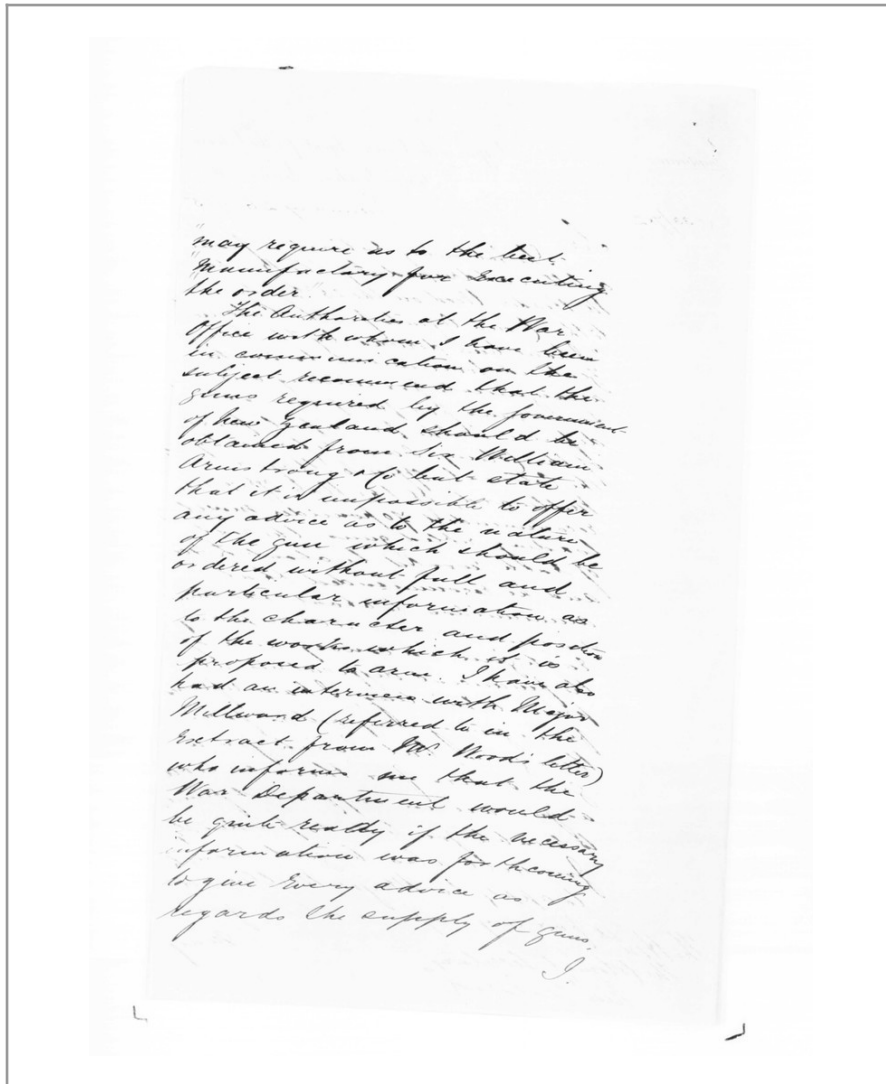 "may require as to the best
"Manufactory for Executing
"the order.
The Authorities at the War
Office with whom I have been
in communication on the
subject recommend that the
guns required by the Government
of New Zealand should be
obtained from Sir William
Armstrong & Co but state
that it is impossible to offer
any advice as to the nature
of the gun which should be
ordered without full and
particular information as
to the character and position
of the works which it is
proposed to arm. I have also
had an interview with Major
Millward (referred to in the
Extract from Mr. Wood's letter)
who informs me that the
War Department would
be quite ready if the necessary
information was forthcoming
to give Every advice as
regards the supply of guns.
I.